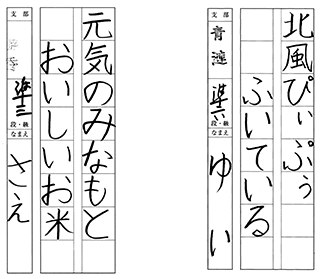 北風ぴぃぷぅ
ふいている
支部
青蓮
準六
段・級
なまえ
ゆい
元気のみなもと
おいしいお米
支部
準三
段・級
なまえ
さえ